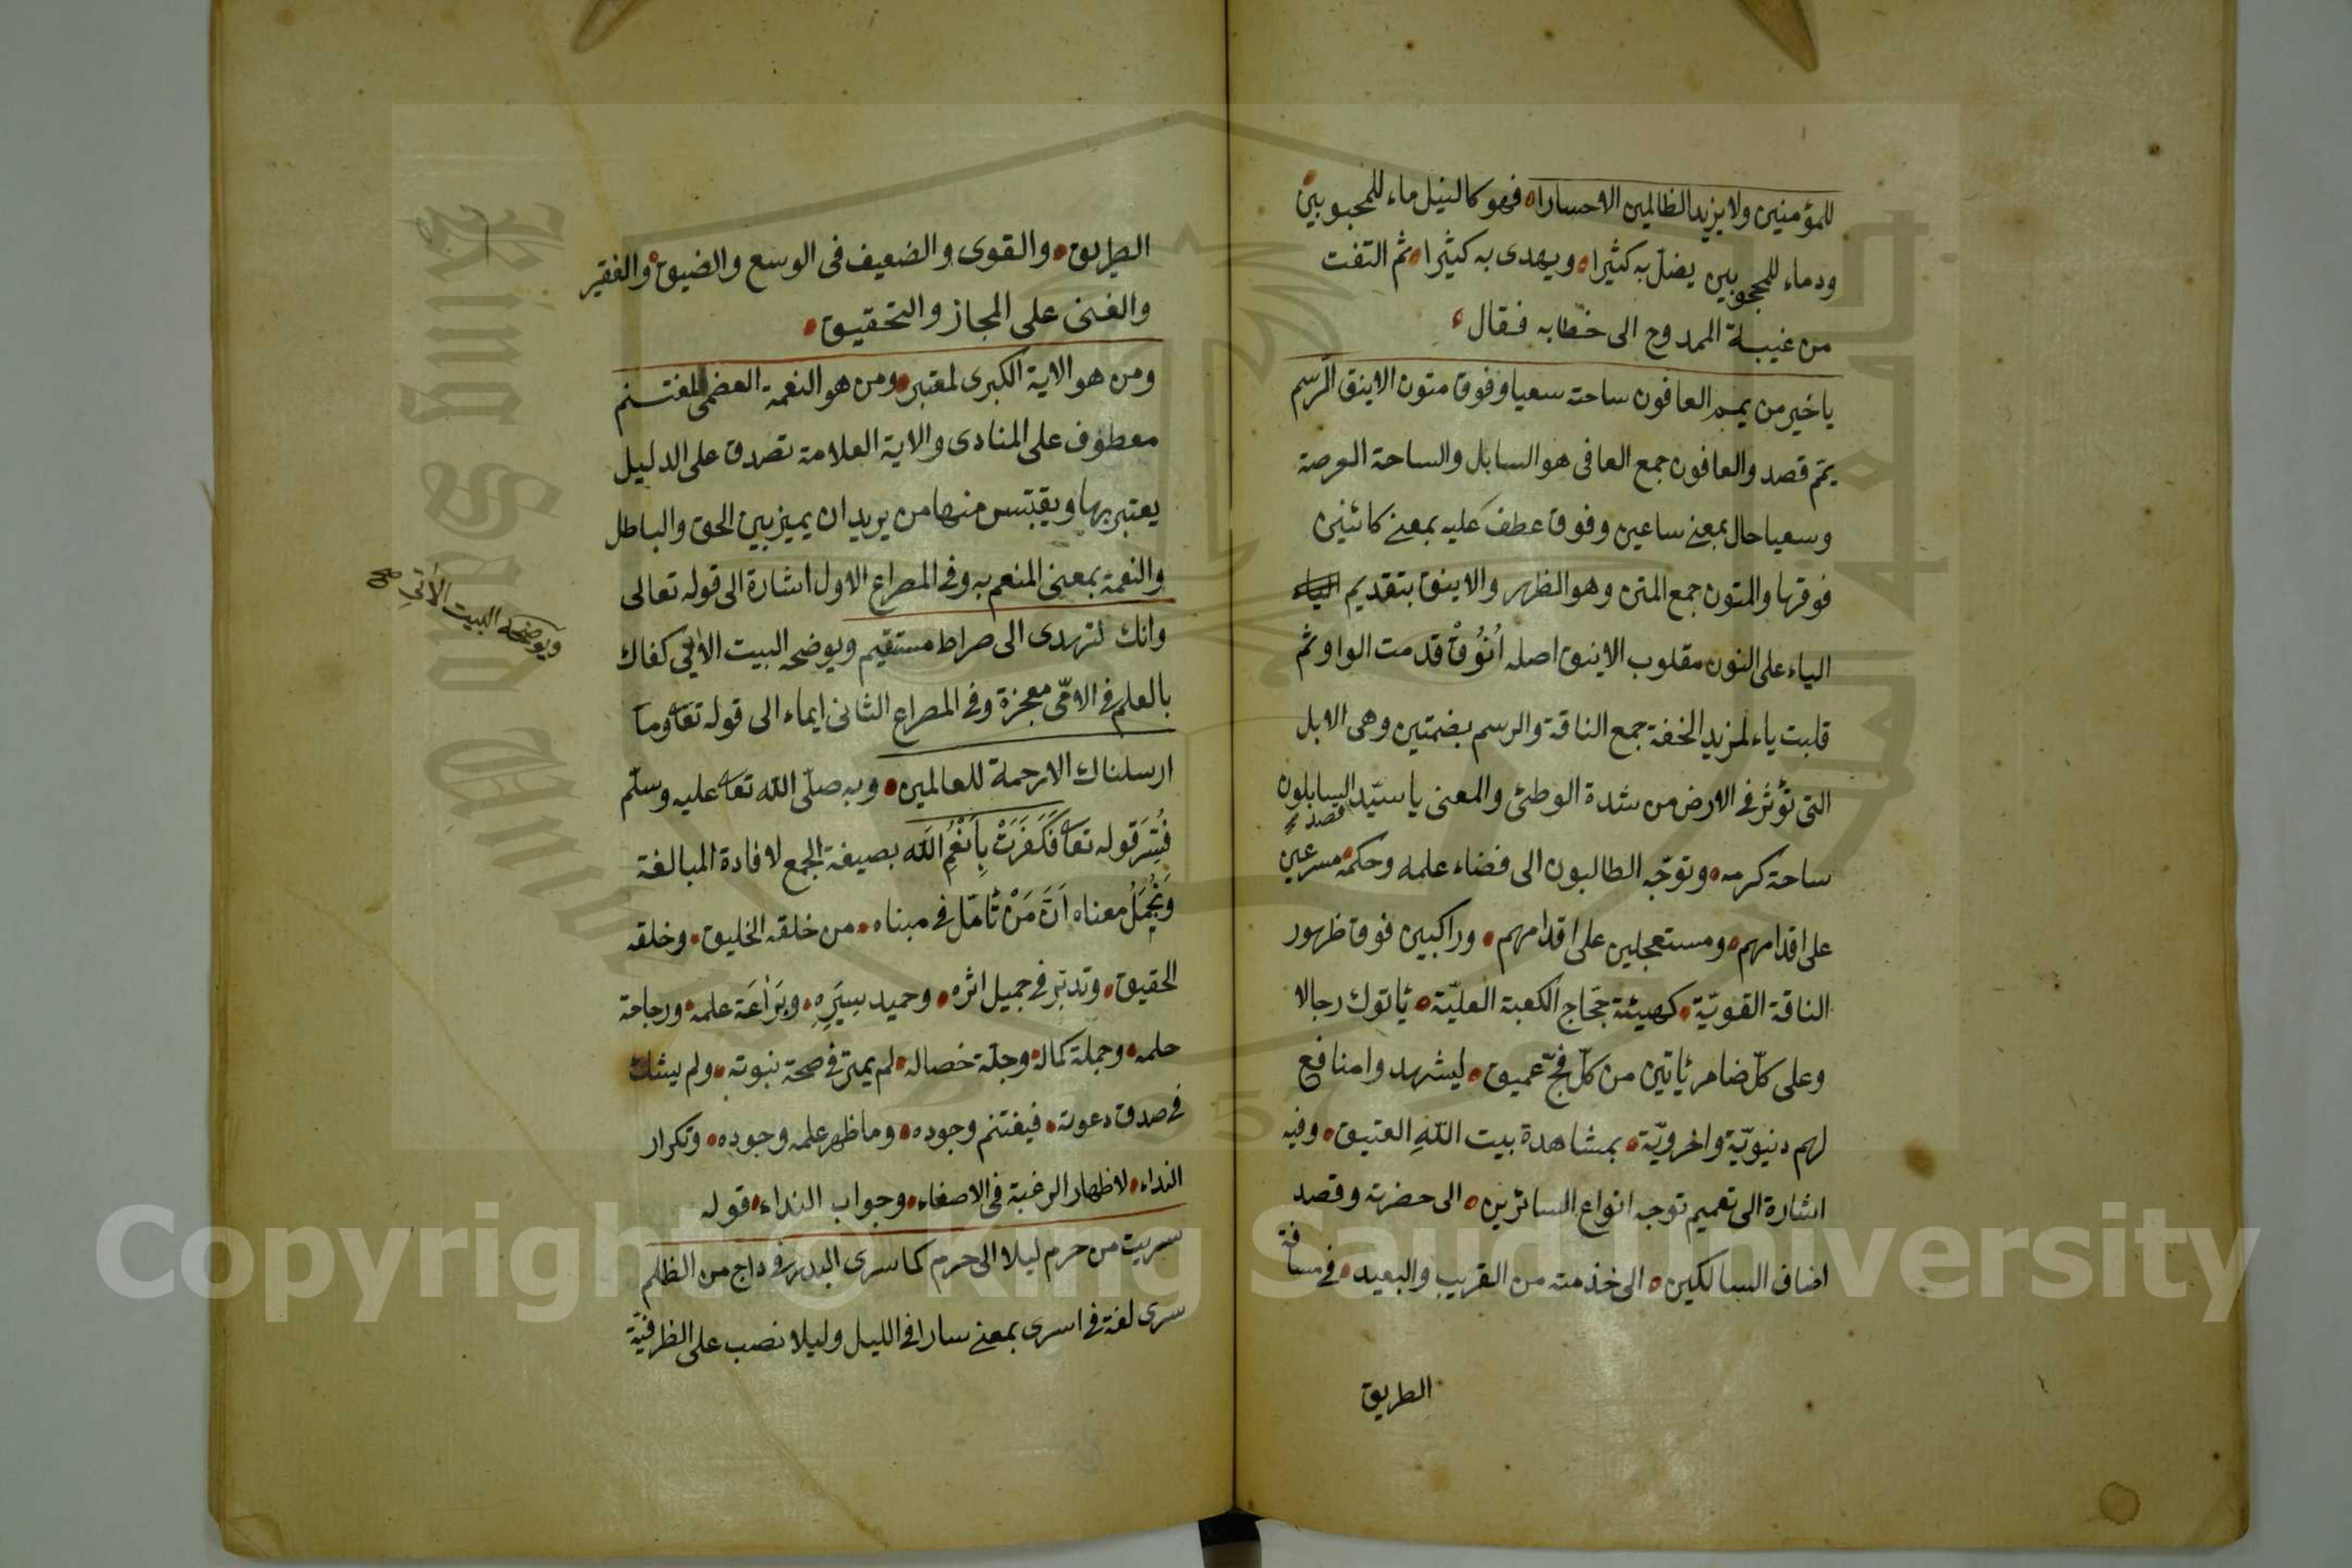 للمؤمنين ولا يزيد الظالمين الا خسارا فهو كالنيل ماء للمحبوبين
ودماء للمحجوبين يضلّ به كثيرا ويهدى به كثيرا ثم التفت
من غيبة الممدوح الى خطابه فقال
يا خير من يمم العافون ساحته سعيا وفوق متون الاينق الرسم
يمّم قصد والعافون جمع العافى هو السايل والساحة العرصة
وسعيا حال بمعنى ساعين وفوق عطف عليه بمعنى كائنين
فوقها والمتون جمع المتن وهو الظهر والاينق بتقديم
الياء على النون مقلوب الانيق اصله اَنْوُقْ قدمت الواو ثم
قلبت ياء لمزيد الخفة جمع الناقة والرسم بضمتين وهى الابل
التى تؤثر فى الارض من شدة الوطئ والمعنى يا سيّد قصد السايلون
ساحة كرمه وتوجّه الطالبون الى فضاء علمه وحكمه مسرعين
على اقدامهم ومستعجلين على اقدامهم وراكبين فوق ظهور
الناقة القويّة كهيئة حجّاج الكعبة العليّة ياتوك رجالا
وعلى كلّ ضامر ياتين من كلّ فجّ عميق ليشهدوا منافع
لهم دنيويّة واخرويّة بمشاهدة بيت الله العتيق وفيه
اشارة الى تعميم توجه انواع السائرين الى حضرته وقصد
اصناف السالكين الى خدمته من القريب والبعيد فى مسافة
الطريق
الطريق والقوى والضعيف فى الوسع والضيق والفقير
والغنى على المجاز والتحقيق
ومن هو الاية الكبرى لمعتبر ومن هو النعمة العضمى لمغتنم
معطوف على المنادى والاية العلامة تصدق على الدليل
يعتبر بها ويقتبس منها من يريد ان يميز بين الحق والباطل
والنعمة بمعنى المنعم به وفى المصراع الاول اشارة الى قوله تعالى
وانك لتهدى الى صراط مستقيم ويوضحه البيت الاتى كفاك
بالعلم فى الامّى معجزة وفى المصراع الثانى ايماء الى قوله تعا وما
ارسلناك الا رحمة للعالمين وبه صلّى الله تعا عليه وسلّم
فُسِّرَ قوله تعا فَكَفَرَتْ بِاَنْعُمِ الله بصيغة الجمع لافادة المبالغة
ومُجْمَلُ معناه اَنَّ مَنْ تأمّل فى مبناه من خلقه الخليق وخلقه
الحقيق وتدبّر فى جميل اثره وحميد سِيَرِهِ وبَرَاعَة علمه ورجاحة
حلمه وجملة كماله وجلّة خصاله لم يمتر فى صحة نبوته ولم يشك
فى صدق دعوته فيغتنم وجوده وما ظهر علمه وجوده وتكرار
النداء لاظهار الرغبة فى الاصغاء وجواب النداء قوله
سريت من حرم ليلا الى حرم كما سرى البدر فى داج من الظلم
سرى لغة فى اسرى بمعنى سار فى الليل وليلا نصب على الظرفيّة
ويوضحه البيت الآتى صح
Copyright © King Saud University